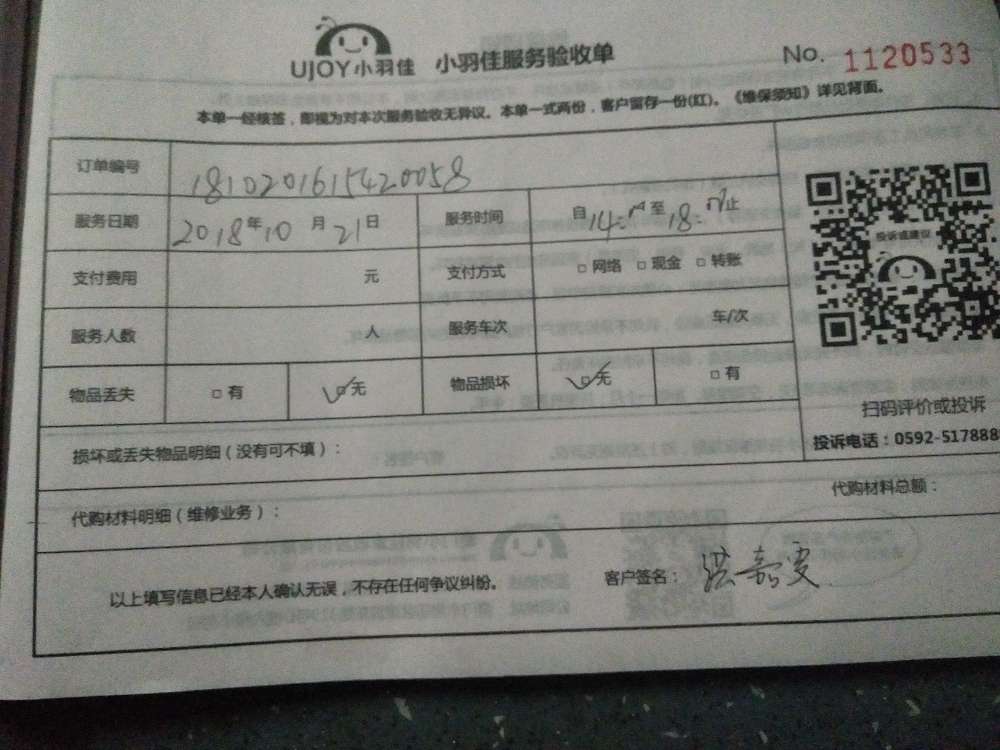 UJOY小羽佳 小羽佳服务验收单 No. 1120533
本单一经核签，即视为对本次服务验收无异议。本单一式两份，客户留存一份(红)。《维保须知》详见背面。
订单编号 1810201615420058
服务日期 2018年10月21日 服务时间 自14:00至18:00止
支付费用 元 支付方式 □网络 □现金 □转账
服务人数 人 服务车次 车/次
物品丢失 □有 ☑无 物品损坏 ☑无 □有
投诉或建议
扫码评价或投诉
投诉电话：0592-5178888
损坏或丢失物品明细（没有可不填）：
代购材料明细（维修业务）： 代购材料总额：
以上填写信息已经本人确认无误，不存在任何争议纠纷。 客户签名：洪嘉雯